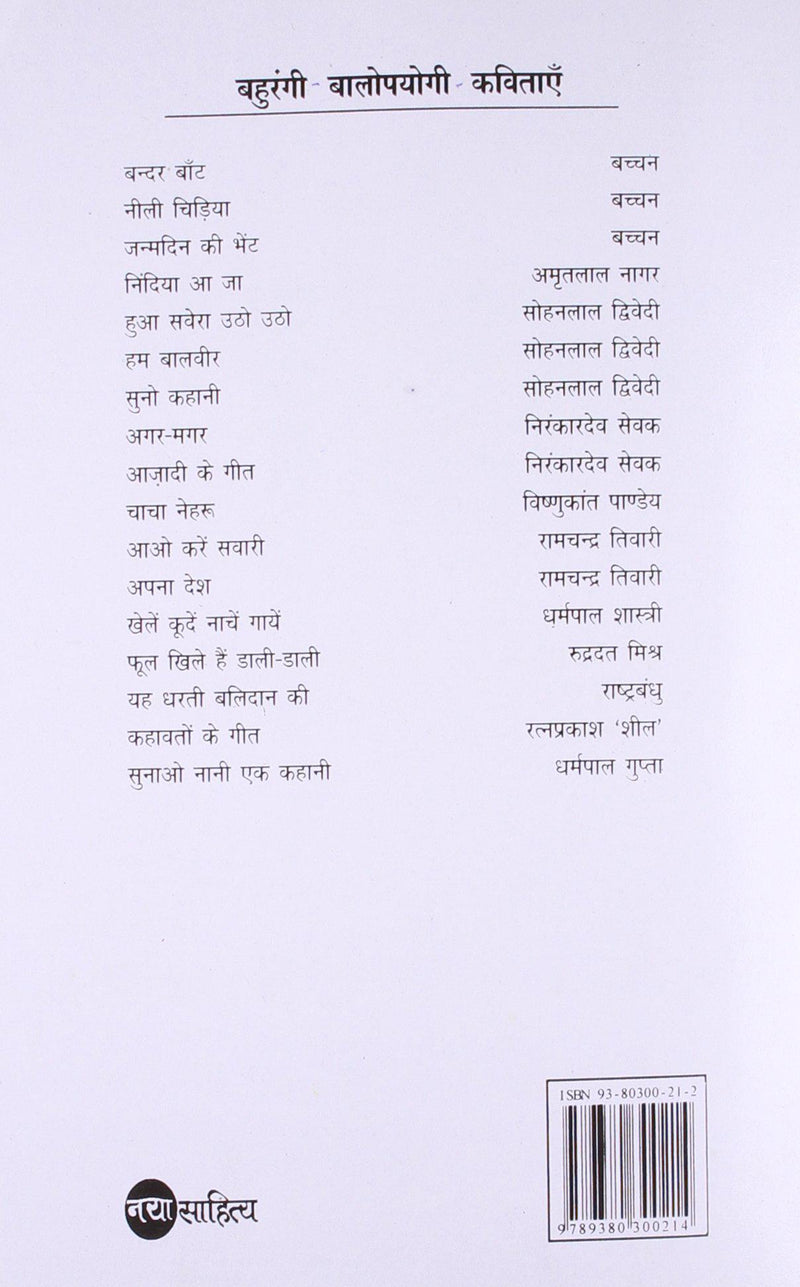 बहुरंगी - बालोपयोगी - कविताएँ
बन्दर बाँट बच्चन
नीली चिड़िया बच्चन
जन्मदिन की भेंट बच्चन
निंदिया आ जा अमृतलाल नागर
हुआ सवेरा उठो उठो सोहनलाल द्विवेदी
हम बालवीर सोहनलाल द्विवेदी
सुनो कहानी सोहनलाल द्विवेदी
अगर-मगर निरंकारदेव सेवक
आज़ादी के गीत निरंकारदेव सेवक
चाचा नेहरू विष्णुकांत पाण्डेय
आओ करें सवारी रामचन्द्र तिवारी
अपना देश रामचन्द्र तिवारी
खेलें कूदें नाचें गायें धर्मपाल शास्त्री
फूल खिले हैं डाली-डाली रुद्रदत मिश्र
यह धरती बलिदान की राष्ट्रबंधु
कहावतों के गीत रत्नप्रकाश 'शील'
सुनाओ नानी एक कहानी धर्मपाल गुप्ता
ISBN 93-80300-21-2
9789380300214
नया साहित्य